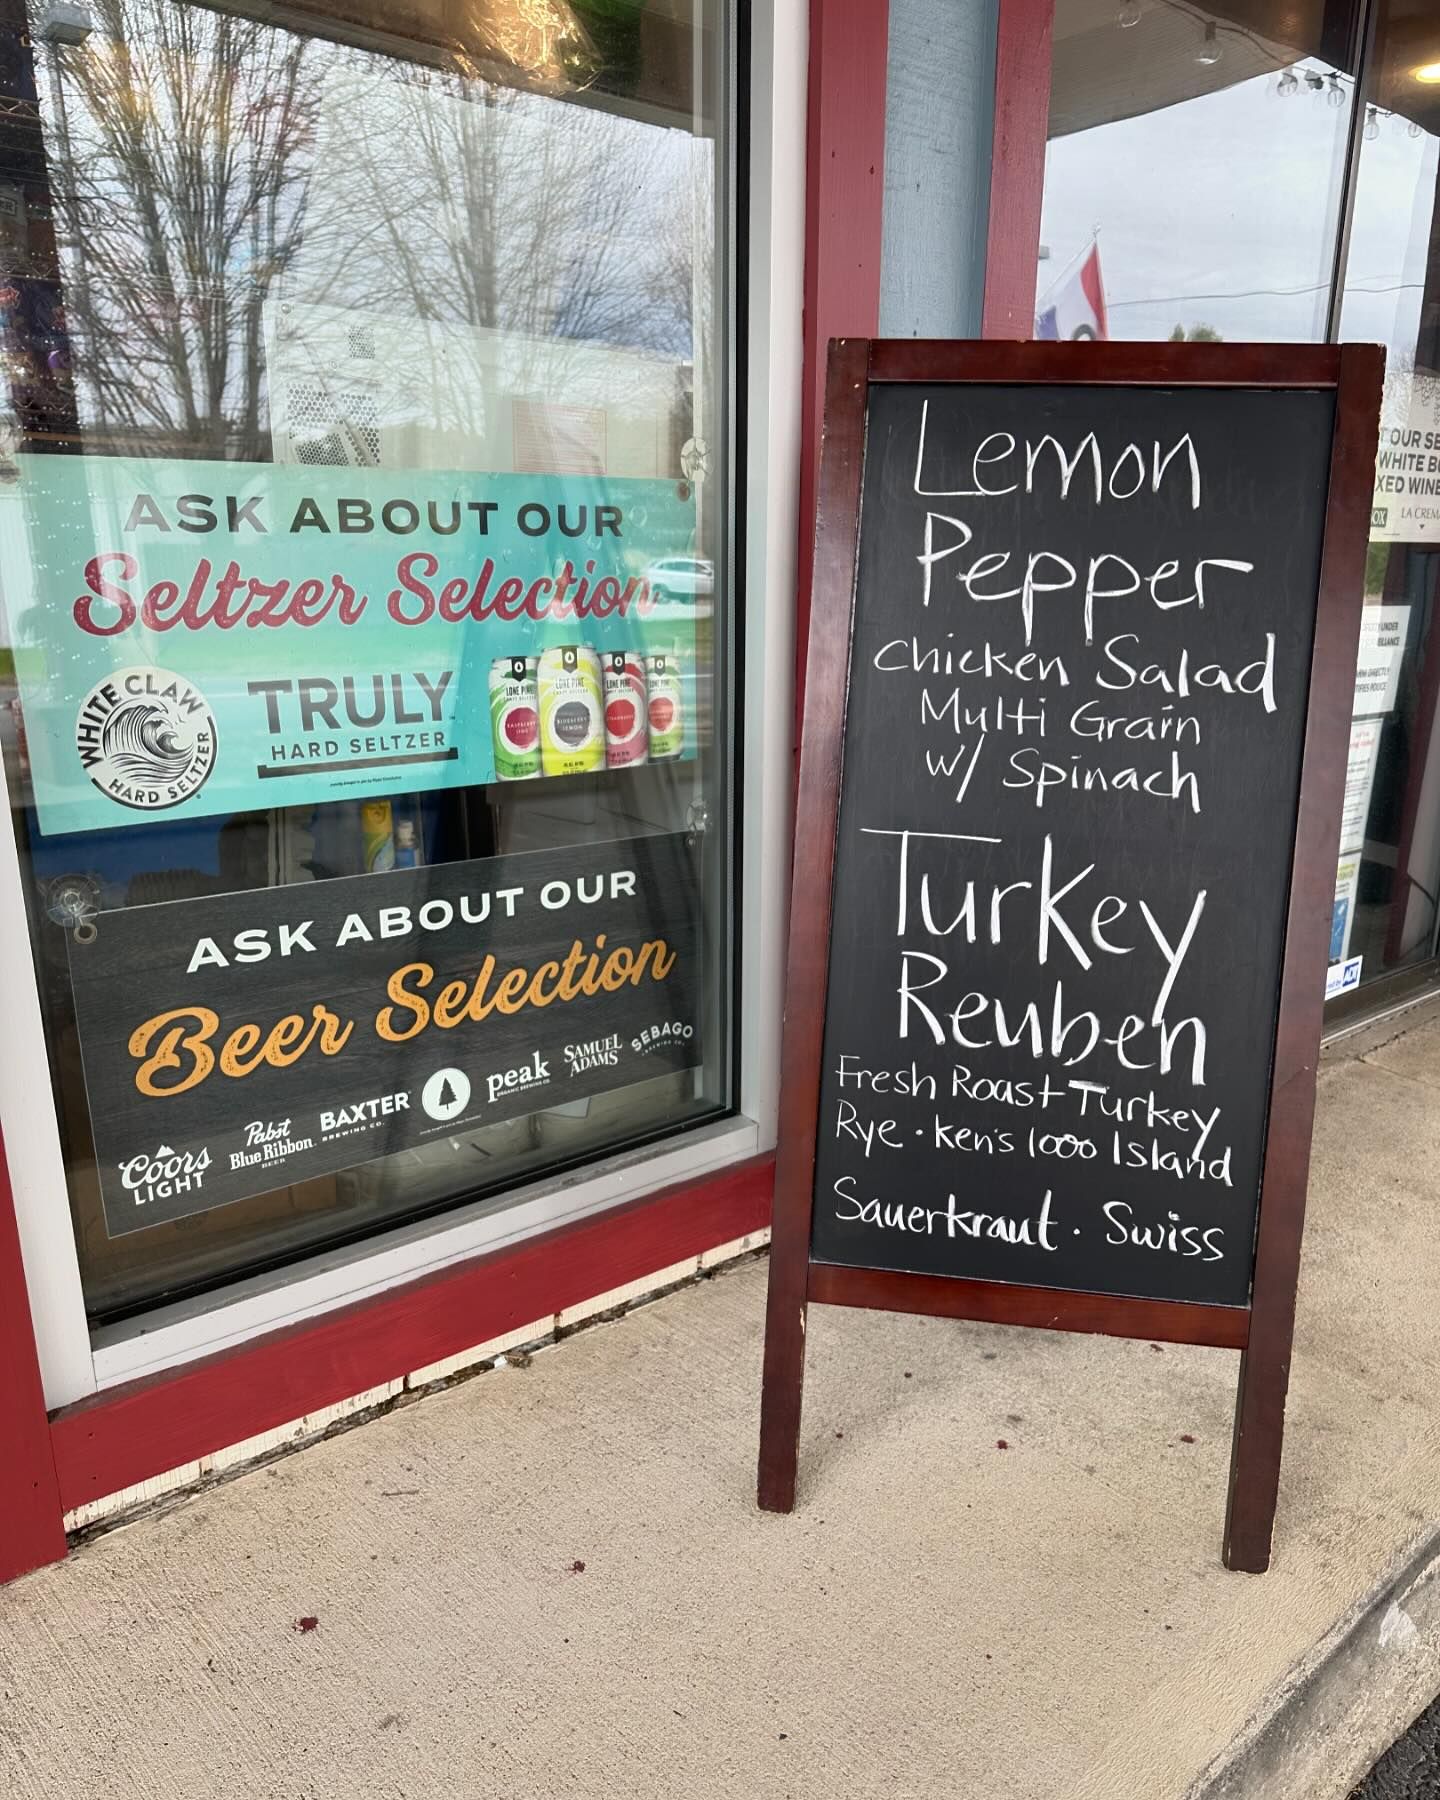 ASK ABOUT OUR
Seltzer Selection
WHITE CLAW
HARD SELTZER
TRULY
HARD SELTZER
LONE PINE
LONE PINE
LONE PINE
ASK ABOUT OUR
Beer Selection
Coors
LIGHT
Pabst
Blue Ribbon
BEER
BAXTER
BREWING CO.
peak
ORGANIC BREWING CO.
SAMUEL
ADAMS
SEBAGO
BREWING CO.
Lemon
Pepper
Chicken Salad
Multi Grain
w/ Spinach
Turkey
Reuben
Fresh Roast Turkey
Rye · Ken's 1000 Island
Sauerkraut · Swiss
OUR SE
WHITE B
XED WINE
OX
LA CREM
ADT